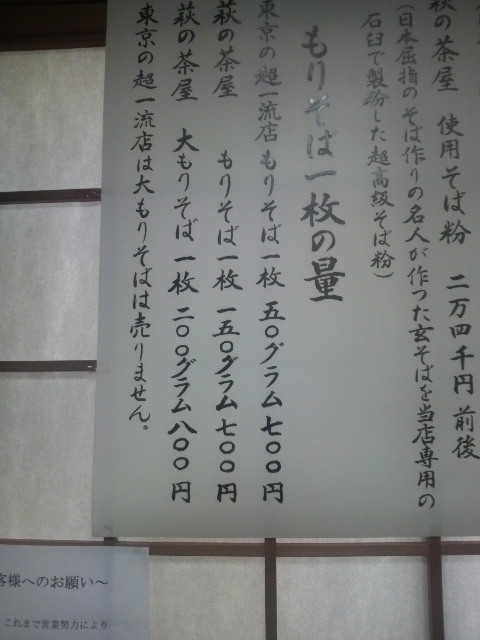 萩の茶屋 使用そば粉 二万四千円前後
(日本屈指のそば作りの名人が作った玄そばを当店専用の
石臼で製粉した超高級そば粉)
もりそば一枚の量
東京の超一流店 もりそば一枚 五〇グラム七〇〇円
萩の茶屋 もりそば一枚 一五〇グラム七〇〇円
萩の茶屋 大もりそば一枚 二〇〇グラム八〇〇円
東京の超一流店は大もりそばは売りません。
客様へのお願い～
これまで営業努力により